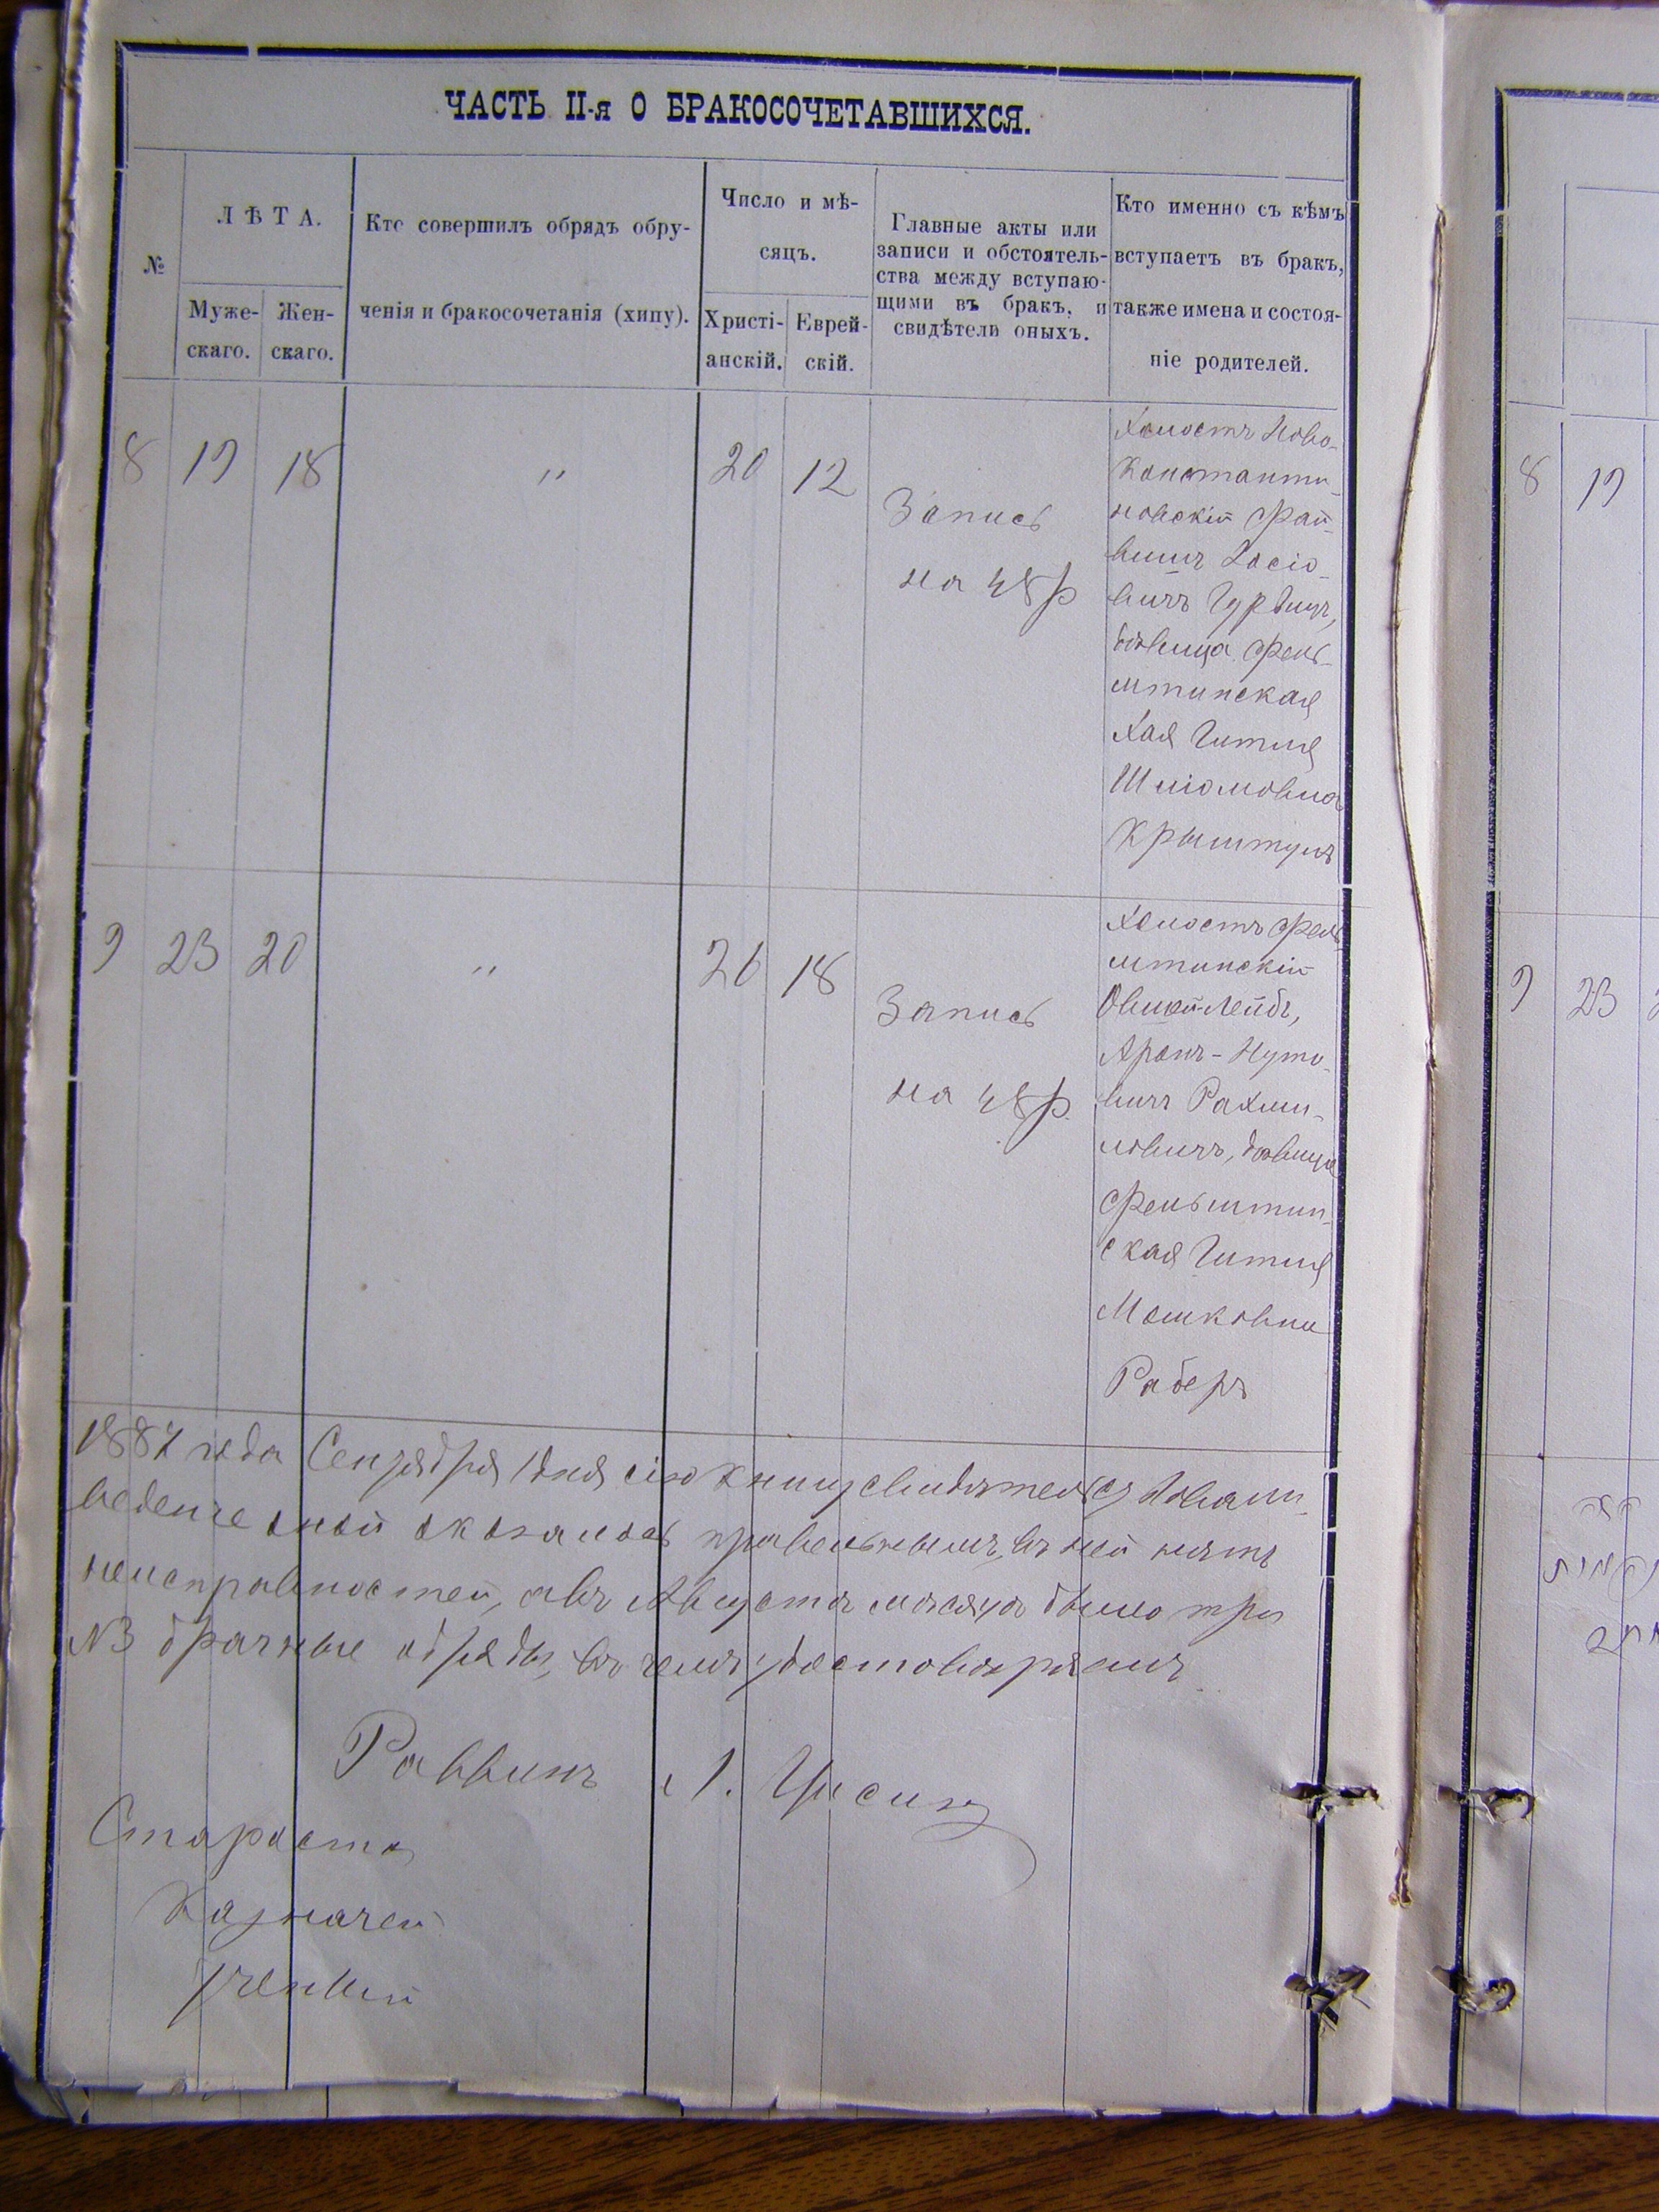 ЧАСТЬ II-я О БРАКОСОЧЕТАВШИХСЯ.
№
ЛѢТА.
Муже-
скаго.
Жен-
скаго.
Кто совершилъ обрядъ обру-
ченія и бракосочетанія (хипу).
Число и мѣ-
сяцъ.
Христі-
анскій.
Еврей-
скій.
Главные акты или
записи и обстоятель-
ства между вступаю-
щими въ бракъ, и
свидѣтели оныхъ.
Кто именно съ кѣмъ
вступаетъ въ бракъ,
также имена и состоя-
ніе родителей.
8 19 18 " 20 12
Запись
на 48 р
Холостъ Ново-
константи-
новскій Фай-
вишъ Іосіо-
вичъ Гурвицъ,
дѣвица Фель-
штинская
Хая Гитля
Шліомовна
Крыштулъ
9 23 20 " 26 18
Запись
на 48 р.
Холостъ Фель-
штинскій
Лейбъ,
Аронъ-Нуто-
вичъ Рахми-
ловичъ, дѣвица
Фельштин-
ская Гитля
Мошковна
Раберъ
1887 года Сентября 1 дня сію книгу свидѣтельствовали
веденіе оной оказалось правельнымъ, въ ней нѣтъ
неисправностей, а въ Августѣ мѣсяцѣ было три
№3 брачные обряды, въ чемъ удостовѣряемъ
Раввинъ Л.
Староста
Казначей
Ученый
8 19
9 23